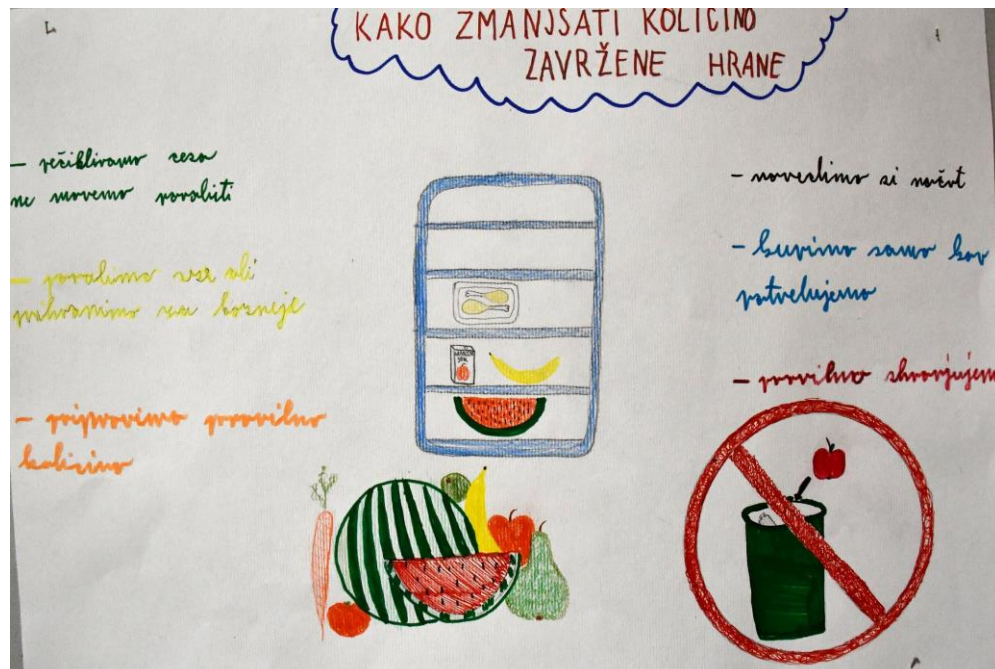 KAKO ZMANJŠATI KOLIČINO
ZAVRŽENE HRANE
- rečikliramo cesa
ne moremo porabiti
- porabimo vse ali
prihranimo za kozneje
- pripravimo pravilno
količino
- naredimo si načrt
- kupimo samo kar
potrebujemo
- pravilno shranjujemo